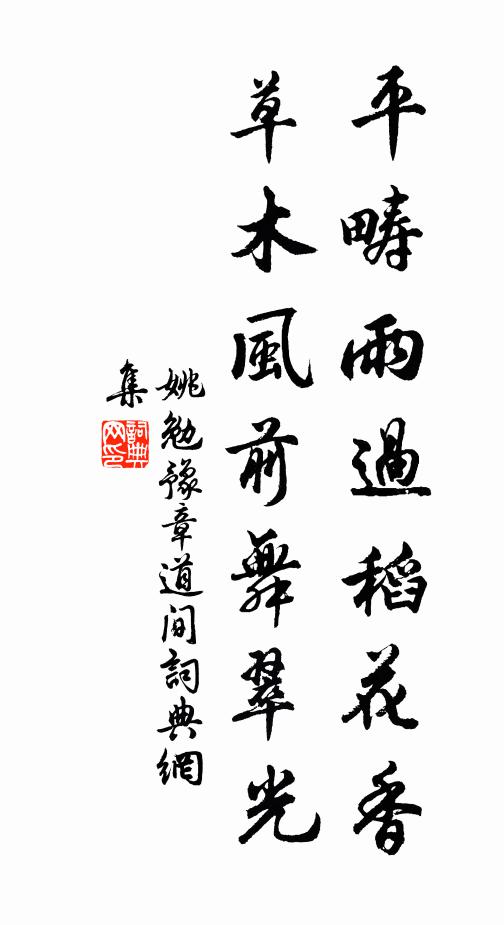 平疇雨過稻花香
草木風前舞翠光
姚勉豫章道間詞典網
集
詞典
网印